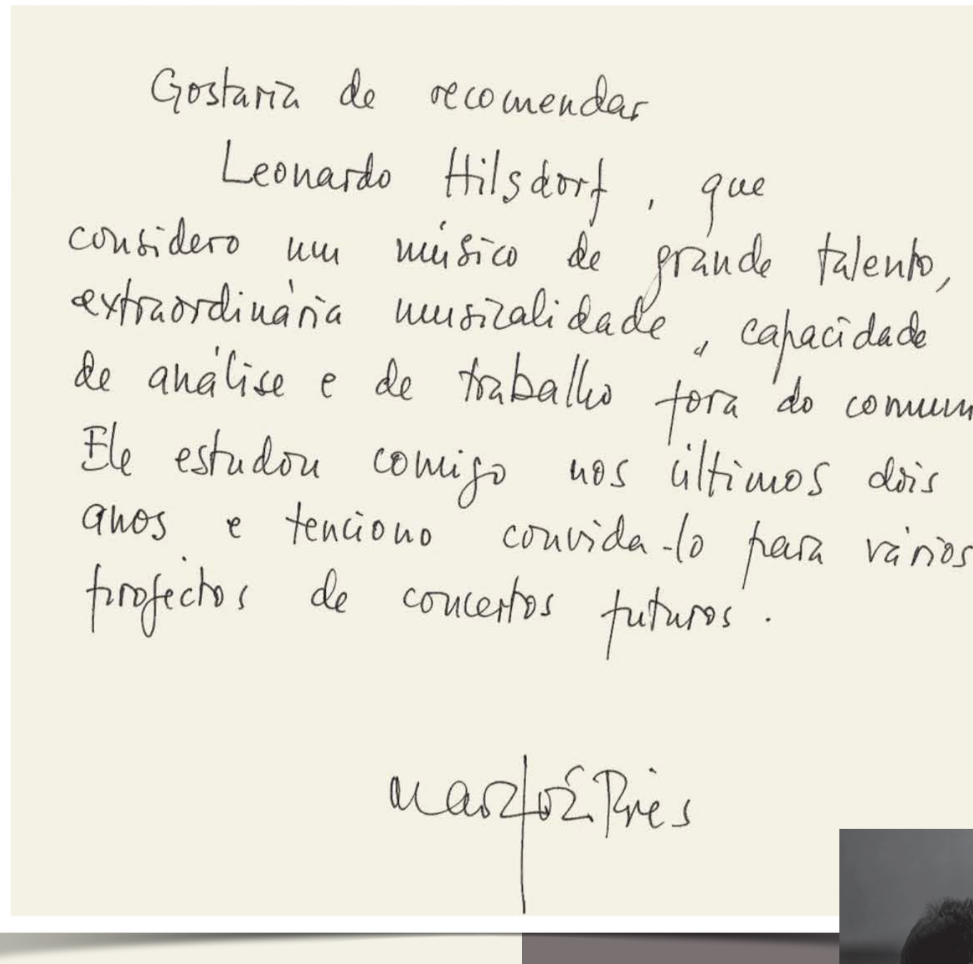 Gostaria de recomendar
Leonardo Hilsdorf, que
considero um músico de grande talento,
extraordinária musicalidade, capacidade
de análise e de trabalho fora do comum
Ele estudou comigo nos últimos dois
anos e tenciono convida-lo para vários
projectos de concertos futuros.
Maria João Pires